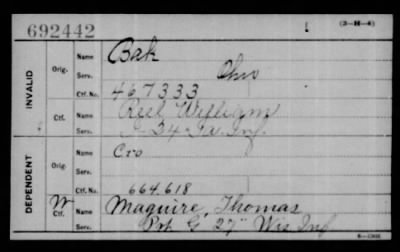 692442
1
(3-H-4)
INVALID
Orig. Name Bak
Serv. Ohio
Ctf. No. 467333
Ctf. Name Reel William
Serv. 24 Ia. Inf.
DEPENDENT
Orig. Name Cro
Serv.
Ctf. No. 664.618
W Ctf. Name Maguire, Thomas
Serv. G, 27" Wis Inf